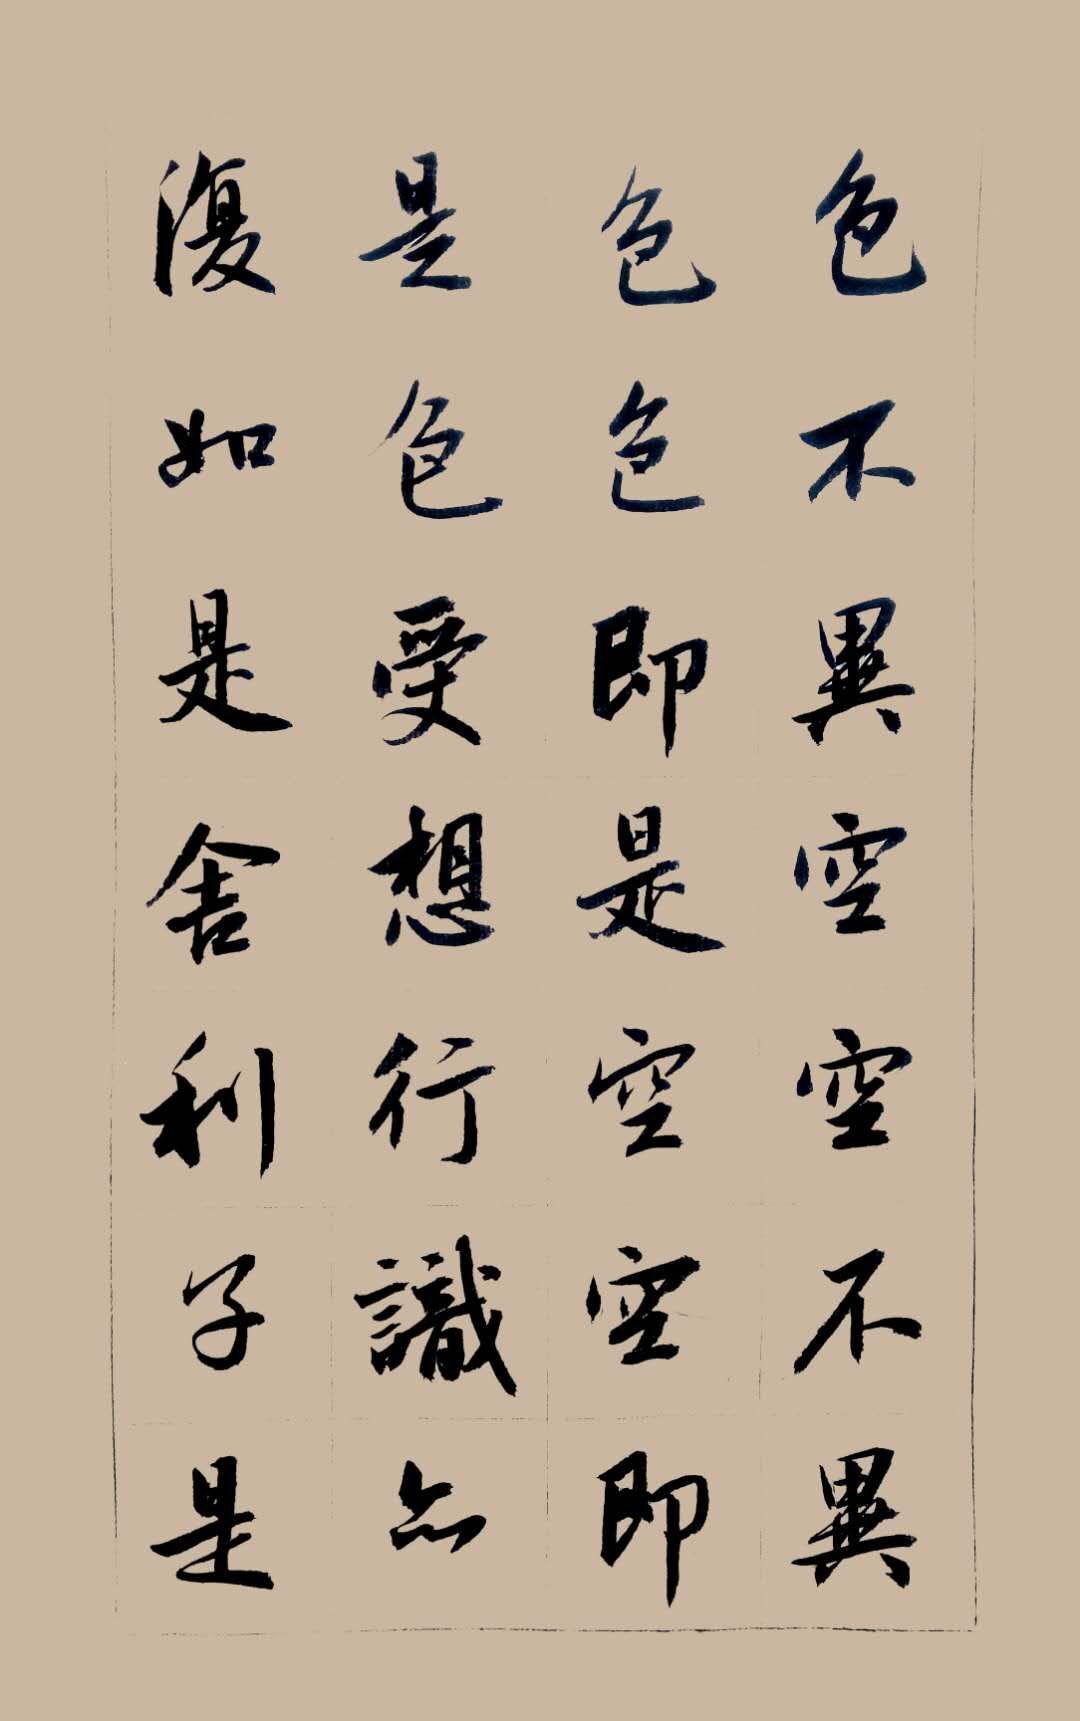 色不異空空不異
色色即是空空即
是色受想行識亦
復如是舍利子是